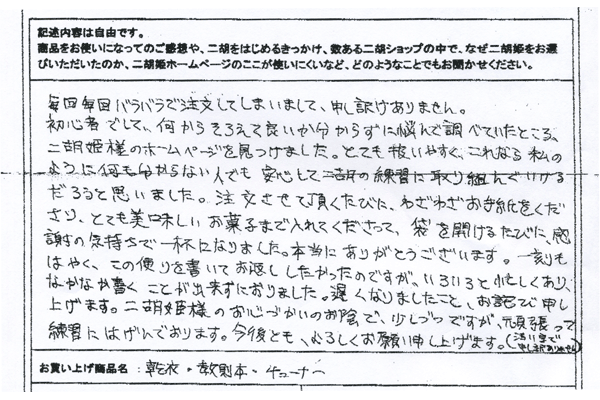 記述内容は自由です。
商品をお使いになってのご感想や、二胡をはじめるきっかけ、数ある二胡ショップの中で、なぜ二胡姫をお選
びいただいたのか、二胡姫ホームページのここが使いにくいなど、どのようなことでもお聞かせください。
毎回毎回バラバラで注文してしまいまして、申し訳けありません。
初心者でして、何からそろえて良いか分からずに悩んで調べていたところ、
二胡姫様のホームページを見つけました。とても扱いやすく、これなら私の
ように何も分からない人でも安心して二胡の練習に取り組んでいける
だろうと思いました。注文させて頂くたびに、わざわざお手紙をくだ
さり、とても美味しいお菓子まで入れてくださって、袋を開けるたびに、感
謝の気持ちで一杯になりました。本当にありがとうございます。一刻も
はやく、この便りを書いてお返ししたかったのですが、いろいろと忙しくあり、
なかなか書くことが出来ずにおりました。遅くなりましたこと、お詫び申し
上げます。二胡姫様のお心づかいのお陰で、少しづつですが、頑張って
練習にはげんでおります。今後とも、よろしくお願い申し上げます。(汚い字で
申し訳ありません)
お買い上げ商品名：乾衣・教則本・チューナー